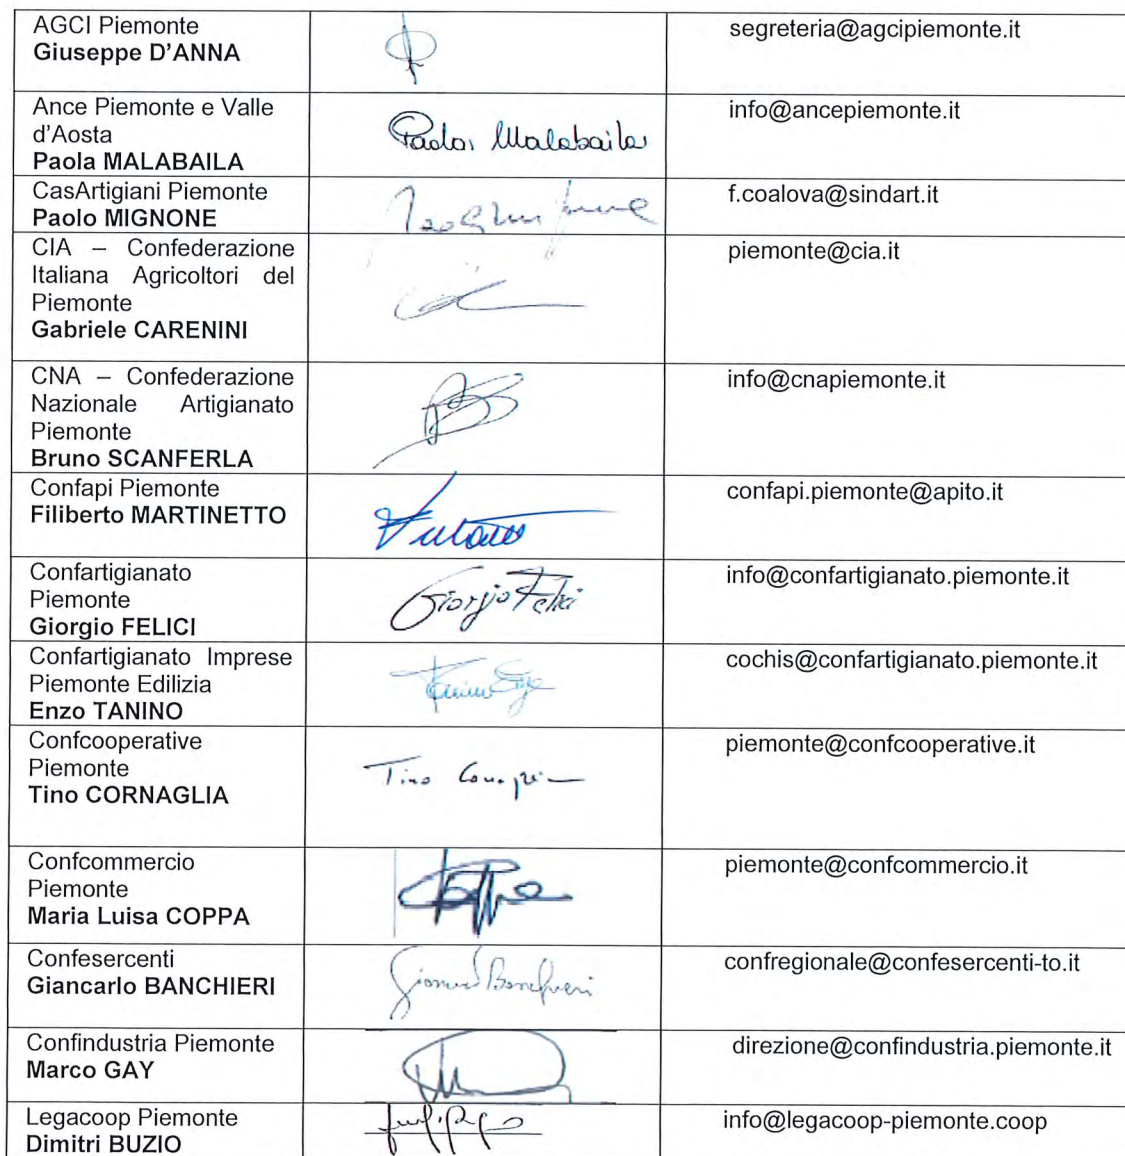 AGCI Piemonte
Giuseppe D'ANNA
segreteria@agcipiemonte.it
Ance Piemonte e Valle
d'Aosta
Paola MALABAILA
Paola Malabaila
info@ancepiemonte.it
CasArtigiani Piemonte
Paolo MIGNONE
f.coalova@sindart.it
CIA – Confederazione
Italiana Agricoltori del
Piemonte
Gabriele CARENINI
piemonte@cia.it
CNA – Confederazione
Nazionale Artigianato
Piemonte
Bruno SCANFERLA
info@cnapiemonte.it
Confapi Piemonte
Filiberto MARTINETTO
confapi.piemonte@apito.it
Confartigianato
Piemonte
Giorgio FELICI
Giorgio Felici
info@confartigianato.piemonte.it
Confartigianato Imprese
Piemonte Edilizia
Enzo TANINO
cochis@confartigianato.piemonte.it
Confcooperative
Piemonte
Tino CORNAGLIA
Tino
piemonte@confcooperative.it
Confcommercio
Piemonte
Maria Luisa COPPA
piemonte@confcommercio.it
Confesercenti
Giancarlo BANCHIERI
confregionale@confesercenti-to.it
Confindustria Piemonte
Marco GAY
direzione@confindustria.piemonte.it
Legacoop Piemonte
Dimitri BUZIO
info@legacoop-piemonte.coop